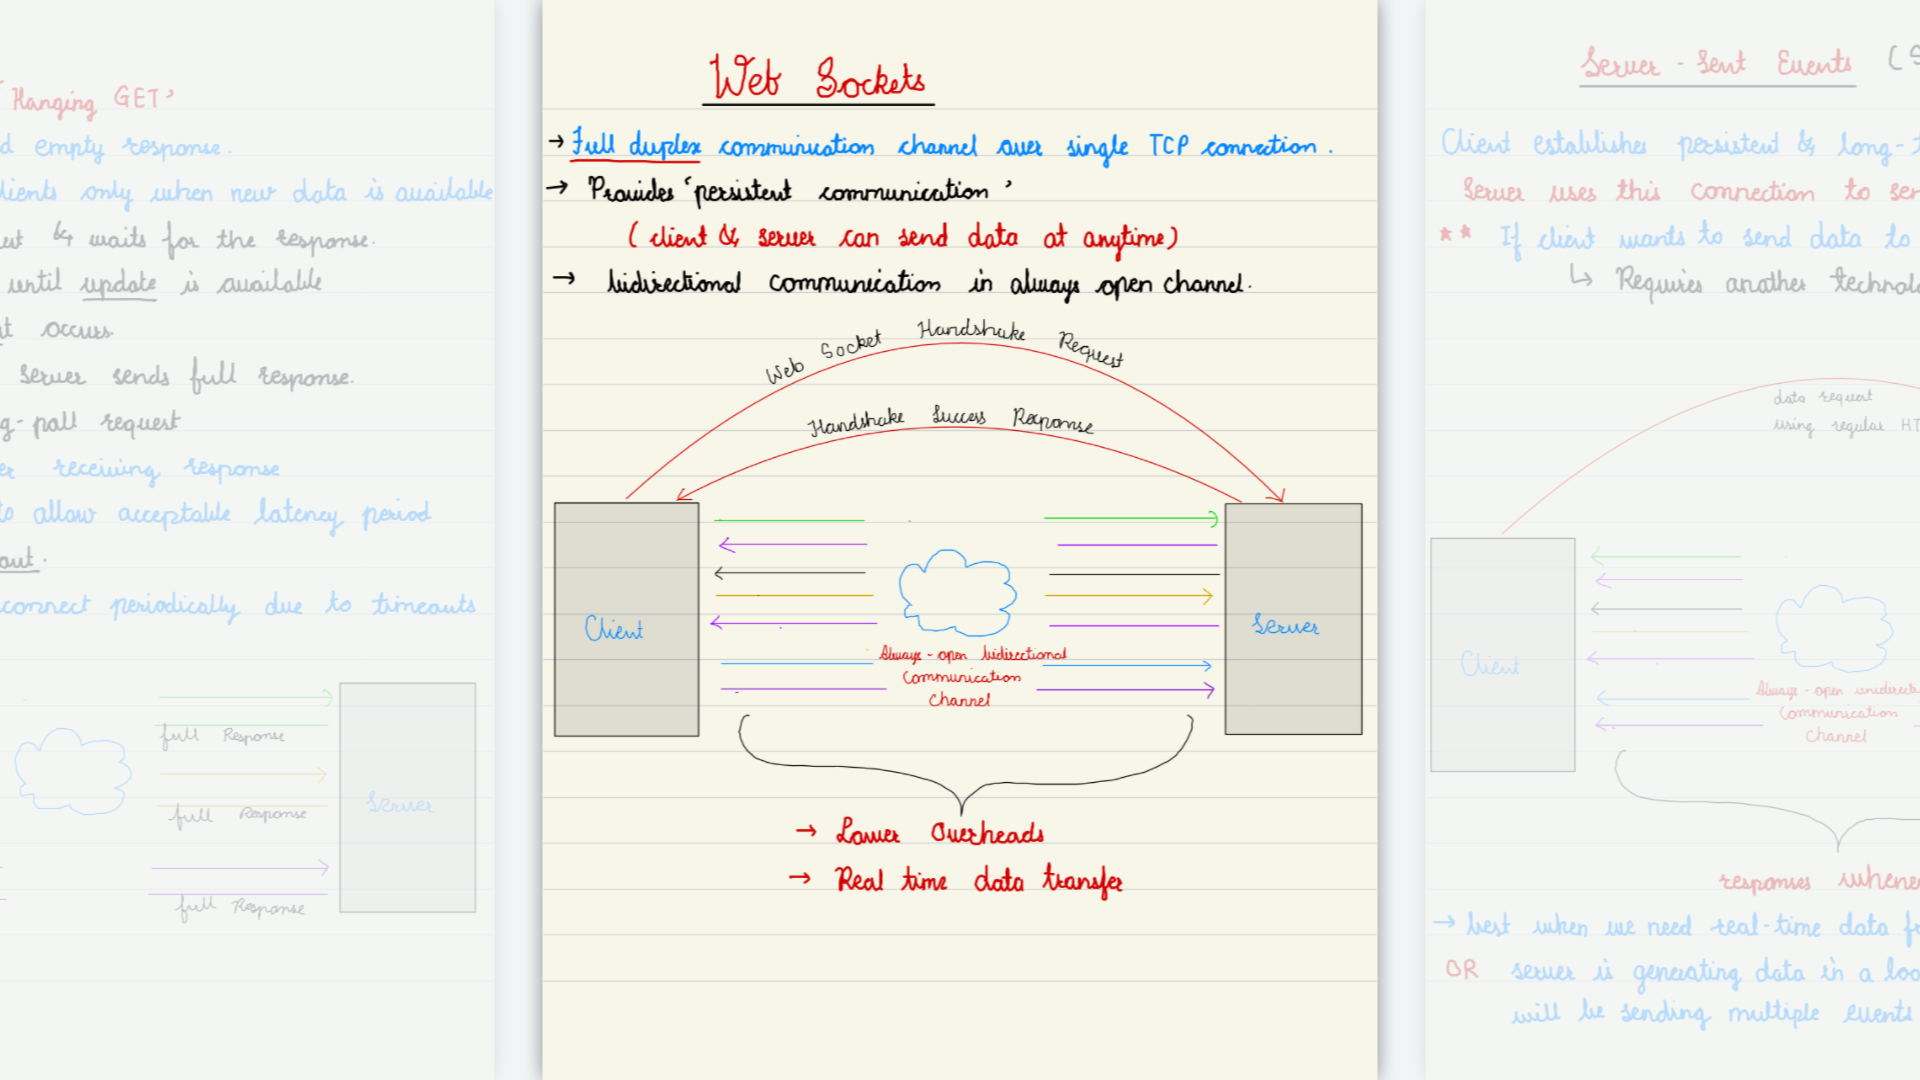 'Hanging GET'
d empty response.
lients only when new data is available
& waits for the response.
until update is available
occurs.
Server sends full response.
g-poll request
er receiving response
to allow acceptable latency period
out.
connect periodically due to timeouts
full Response
full Response
full Response
Server
Web Sockets
→ Full duplex communication channel over single TCP connection.
→ Provides 'persistent communication'
(client & server can send data at anytime)
→ bidirectional communication in always open channel.
Web Socket Handshake Request
Handshake Success Response
Client
Server
Always-open bidirectional
Communication
Channel
→ Lower Overheads
→ Real time data transfer
Server-Sent Events (S
Client establishes persistent & long-t
Server uses this connection to sen
** If client wants to send data to
↳ Requires another technolo
data request
using regular HT
Client
Always-open unidirecti
Communication
Channel
responses whene
→ best when we need real-time data f
OR server is generating data in a loo
will be sending multiple events